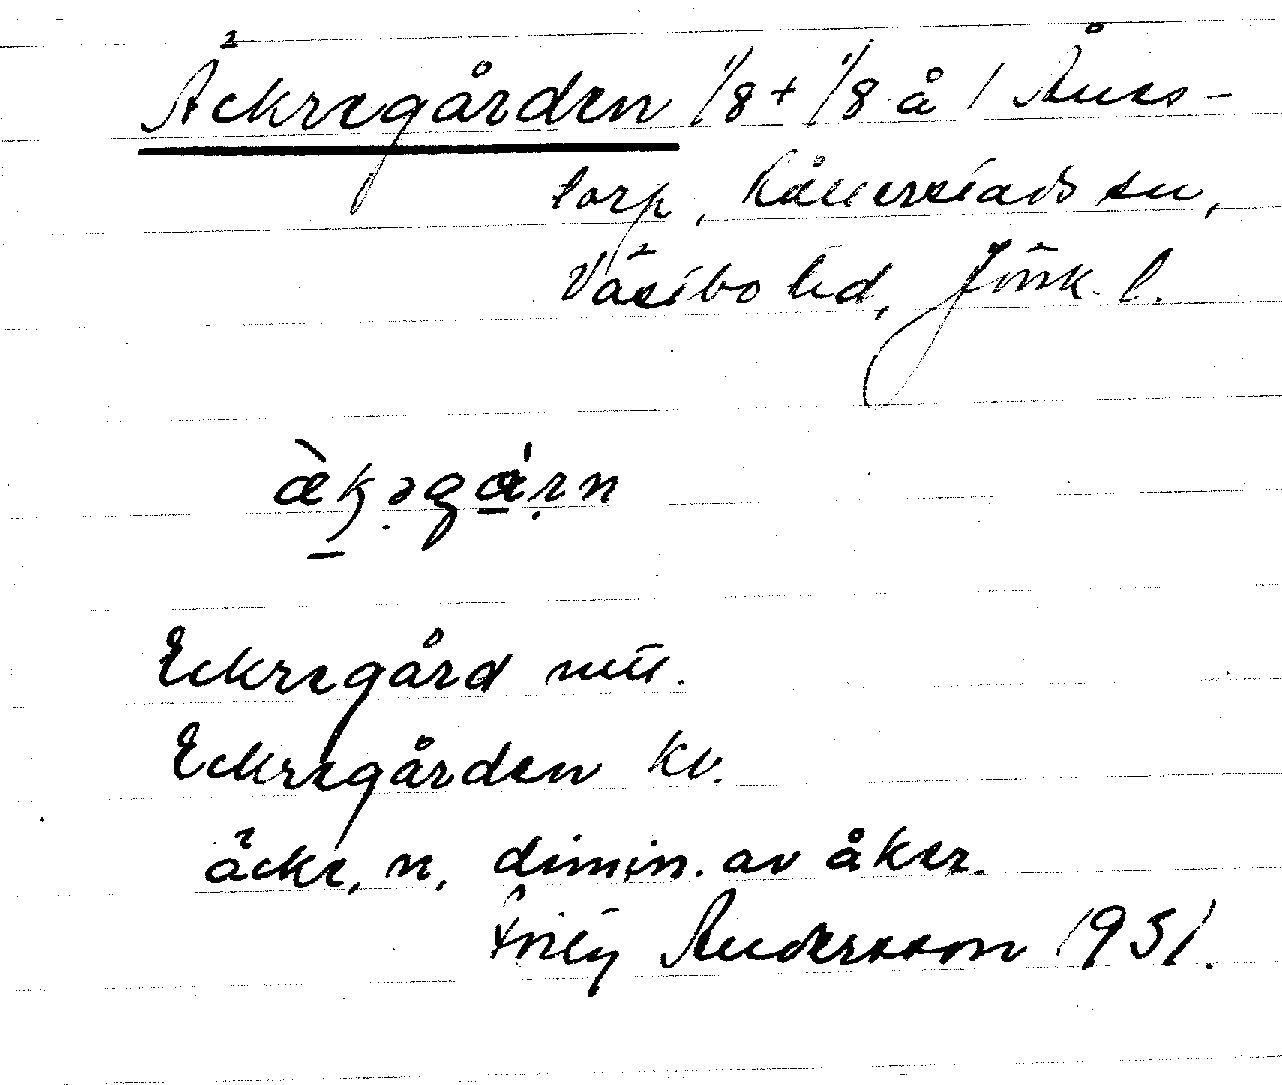 Äckregården 1/8 + 1/8 å 1 Ånes-
torp, Kållerstads sn,
Västbo hd, Jönk. l.
æ̀ḵəgɑ́ṛn
Eckregård mtl.
Eckregården kv.
äcke, n, dimin. av åker.
Andersson 1931.